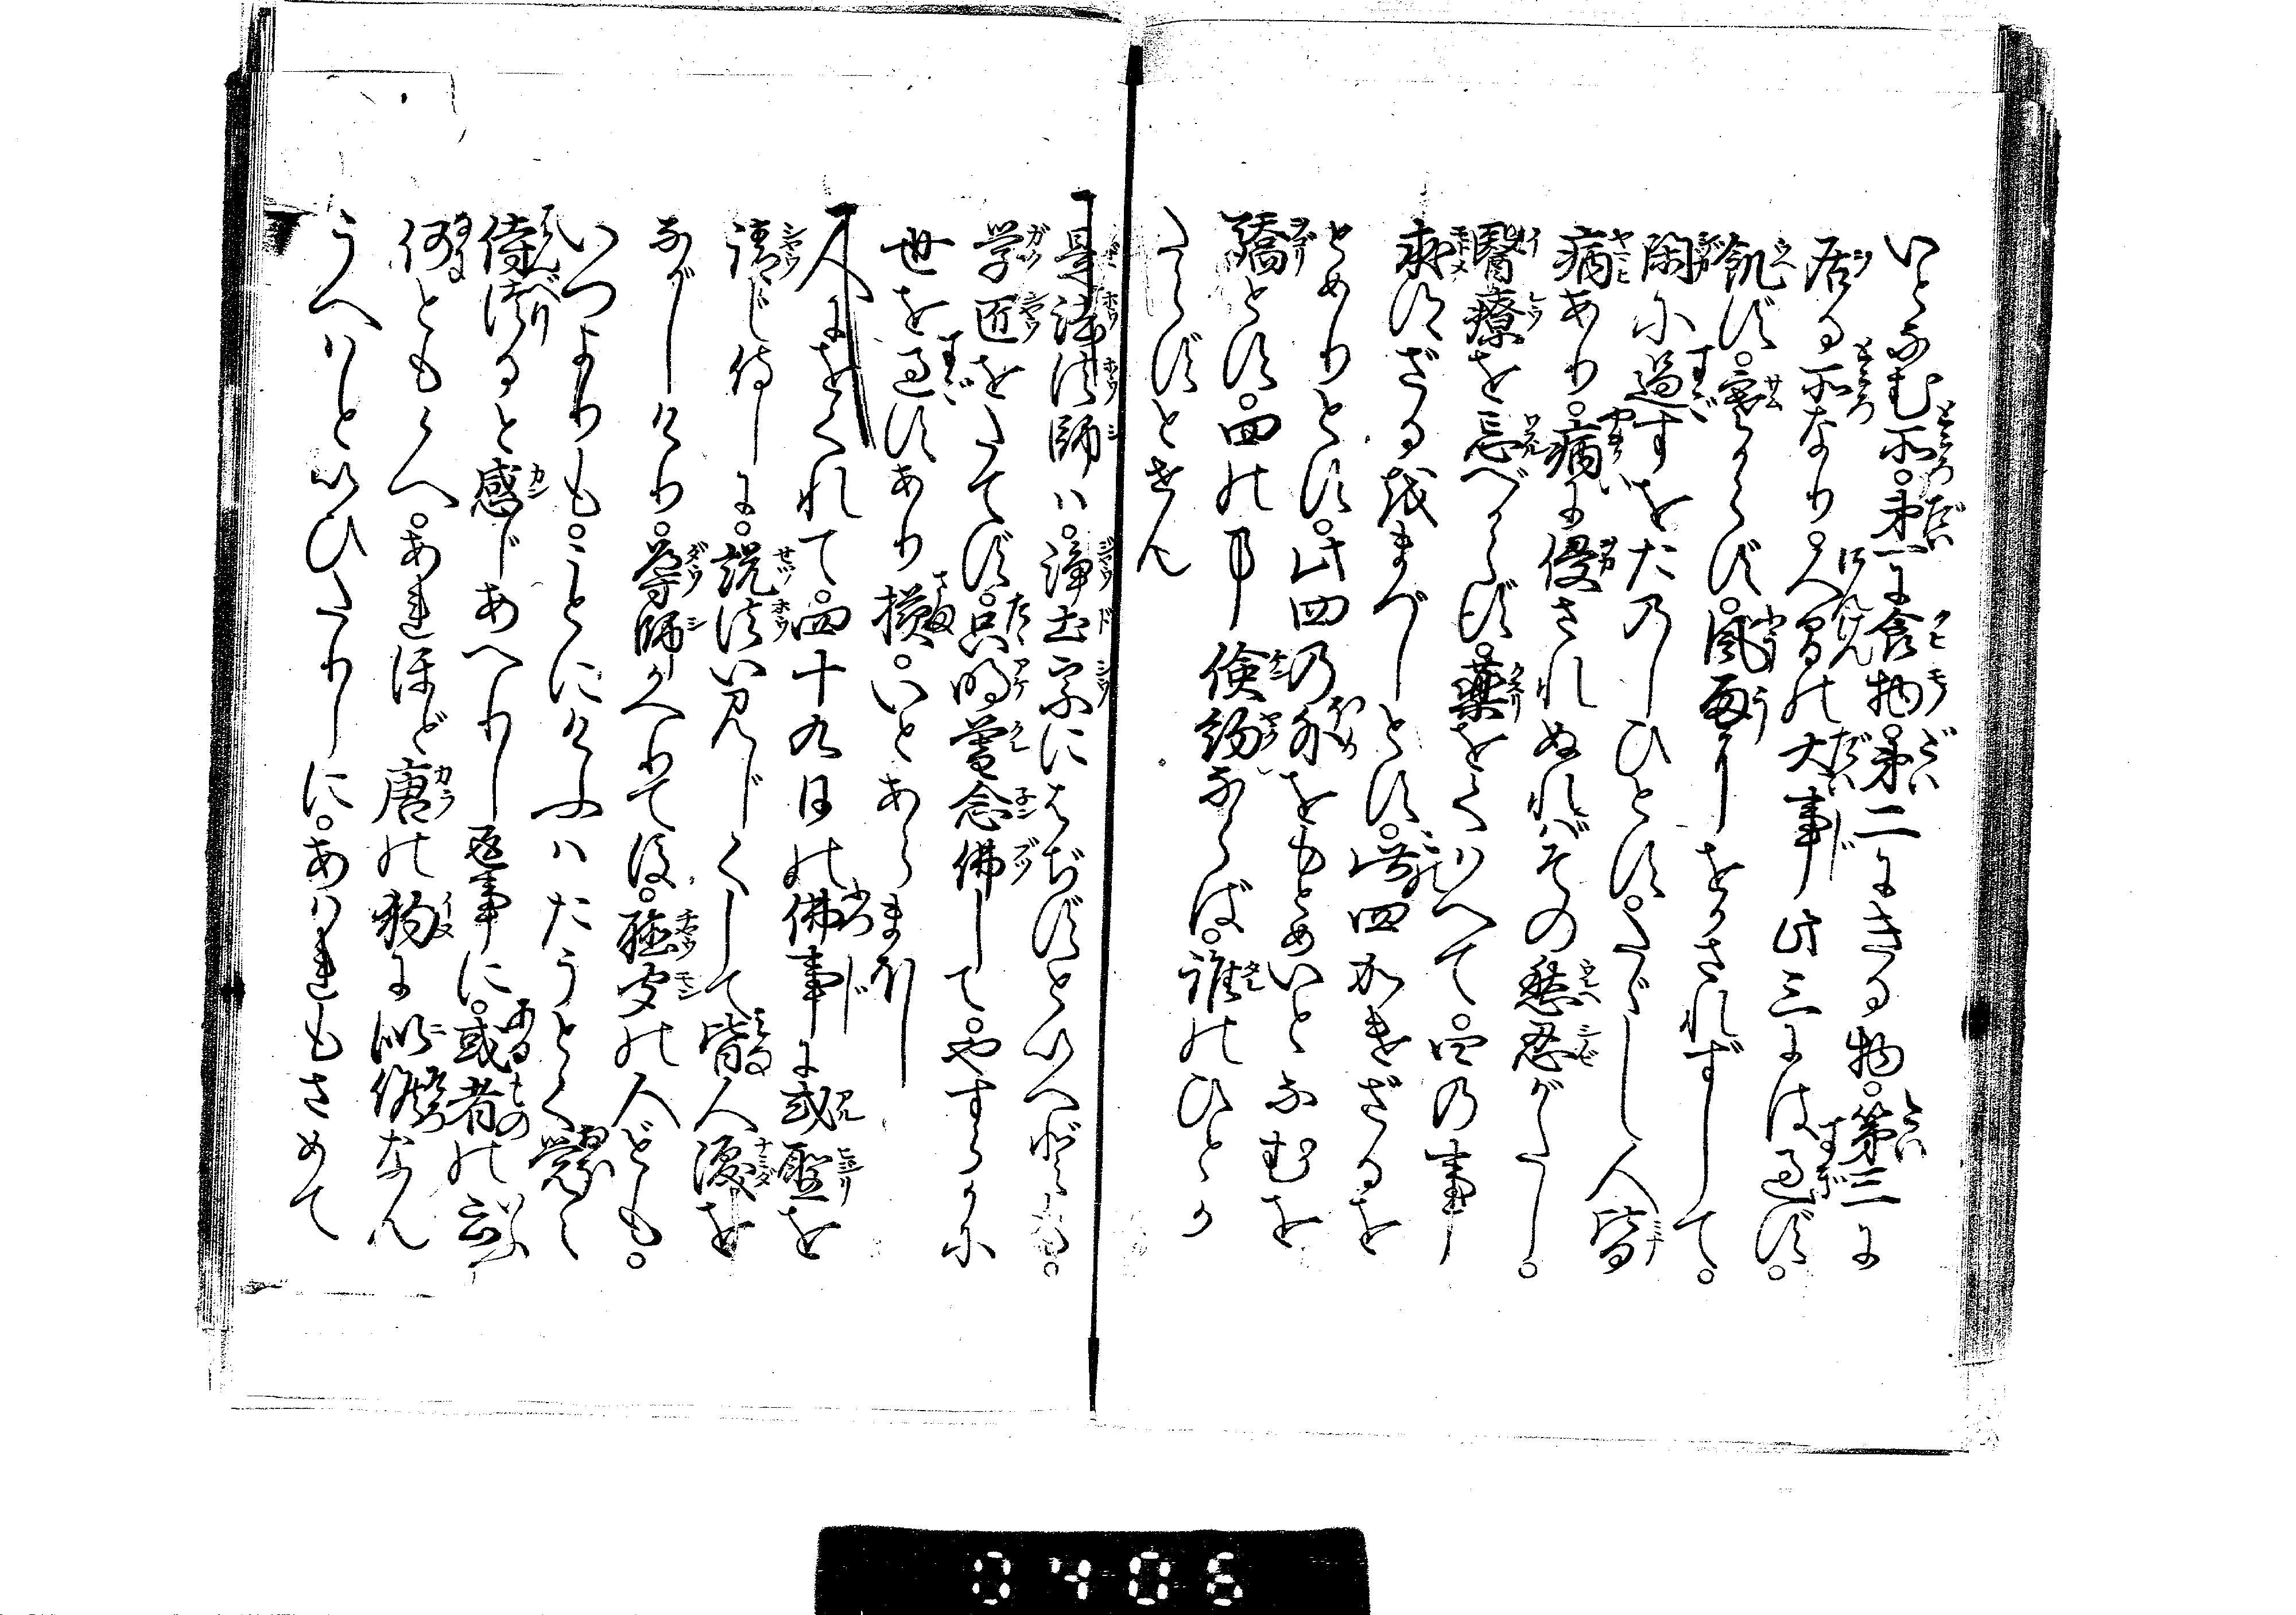 いとなむ所。第一に食物。第二にきる物。第三に
居る所なり。人間の大事此三には過ず。
飢ず。寒からず。風雨にをかされずして。
閑に過すをたのしひとす。たゞし人皆
病あり。病に侵されぬればその愁忍がたし。
醫療を忘べからず。薬をくはへて。四の事
求得ざるをまづしとす。此四かけざるを
とめりとす。此四の外をもとめいとなむを
驕とす。四の事倹約ならば。誰のひとか
たらずとせん
是法法師ハ。浄土宗にはぢずといへども。
学匠をたてず。只明暮念佛して。やすらかに
世を過すあり様。いとあらまほし
人にをくれて。四十九日の佛事に或聖を
請じ侍しに。説法いみじくして皆人涙を
ながしけり。導師かへりて後。聴聞の人ども。
いつよりも。ことにけふハたうとく覚え
侍つると感じあへりし返事に。或者の云
何とも候へ。あれほど唐の狗に似候なん
うへハといひたりしに。あはれもさめて
0406